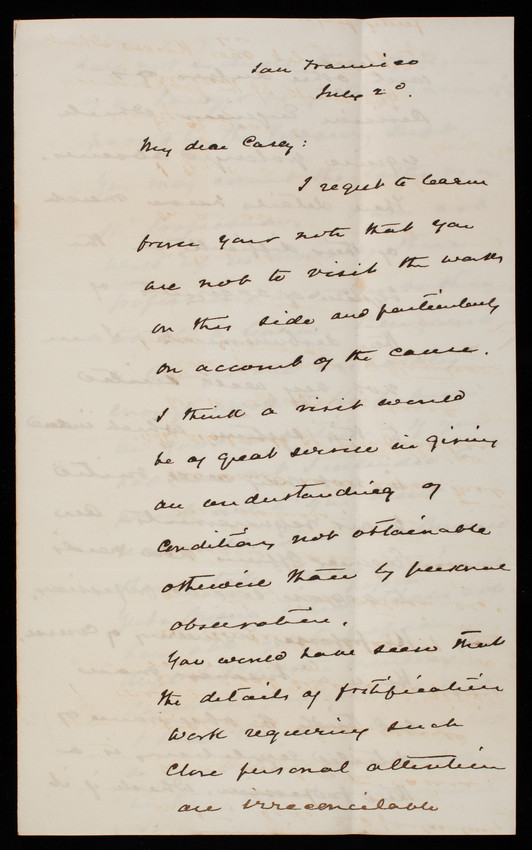 San Francisco
July 20.
My dear Casey:
I regret to learn
from your note that you
are not to visit the works
on this side and particularly
on account of the cause.
I think a visit would
be of great service in giving
an understanding of
conditions not obtainable
otherwise than by personal
observation.
You would have seen that
the details of fortification
work requiring such
close personal attention
are irreconcilable